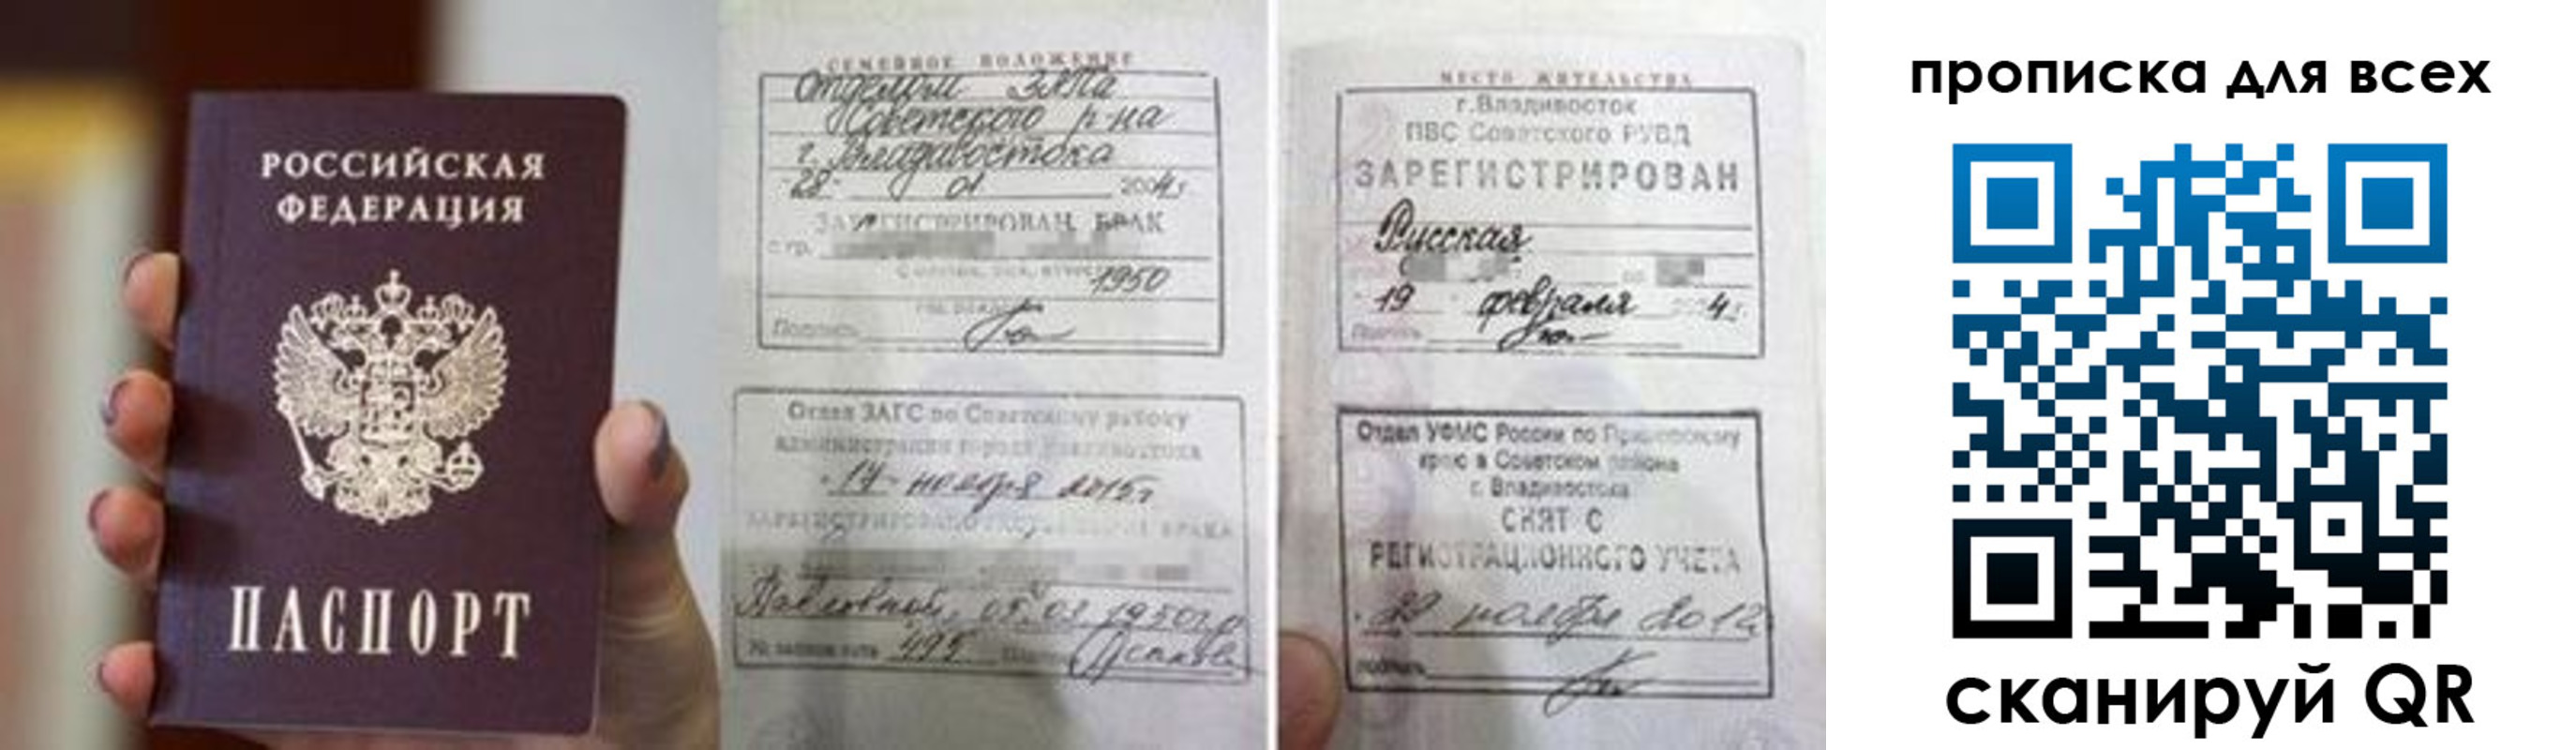 РОССИЙСКАЯ
ФЕДЕРАЦИЯ
ПАСПОРТ
СЕМЕЙНОЕ ПОЛОЖЕНИЕ
Отделом ЗАГСа
Советского р-на
г. Владивостока
"28" 01 2004 г.
ЗАРЕГИСТРИРОВАН БРАК
с гр.
1950
Подпись
Отдел ЗАГС по Советскому району
администрации города Владивостока
"17" ноября 2015 г.
БРАКА
Павловной, 05.03.1950 г.р.
№ записи акта 495
МЕСТО ЖИТЕЛЬСТВА
г.Владивосток
ПВС Советского РУВД
ЗАРЕГИСТРИРОВАН
Русская
19 февраля 4г.
Подпись
Отдел УФМС России по Приморскому
краю в Советском районе
г. Владивостока
СНЯТ С
РЕГИСТРАЦИОННОГО УЧЕТА
ноября 2012
подпись
прописка для всех
сканируй QR